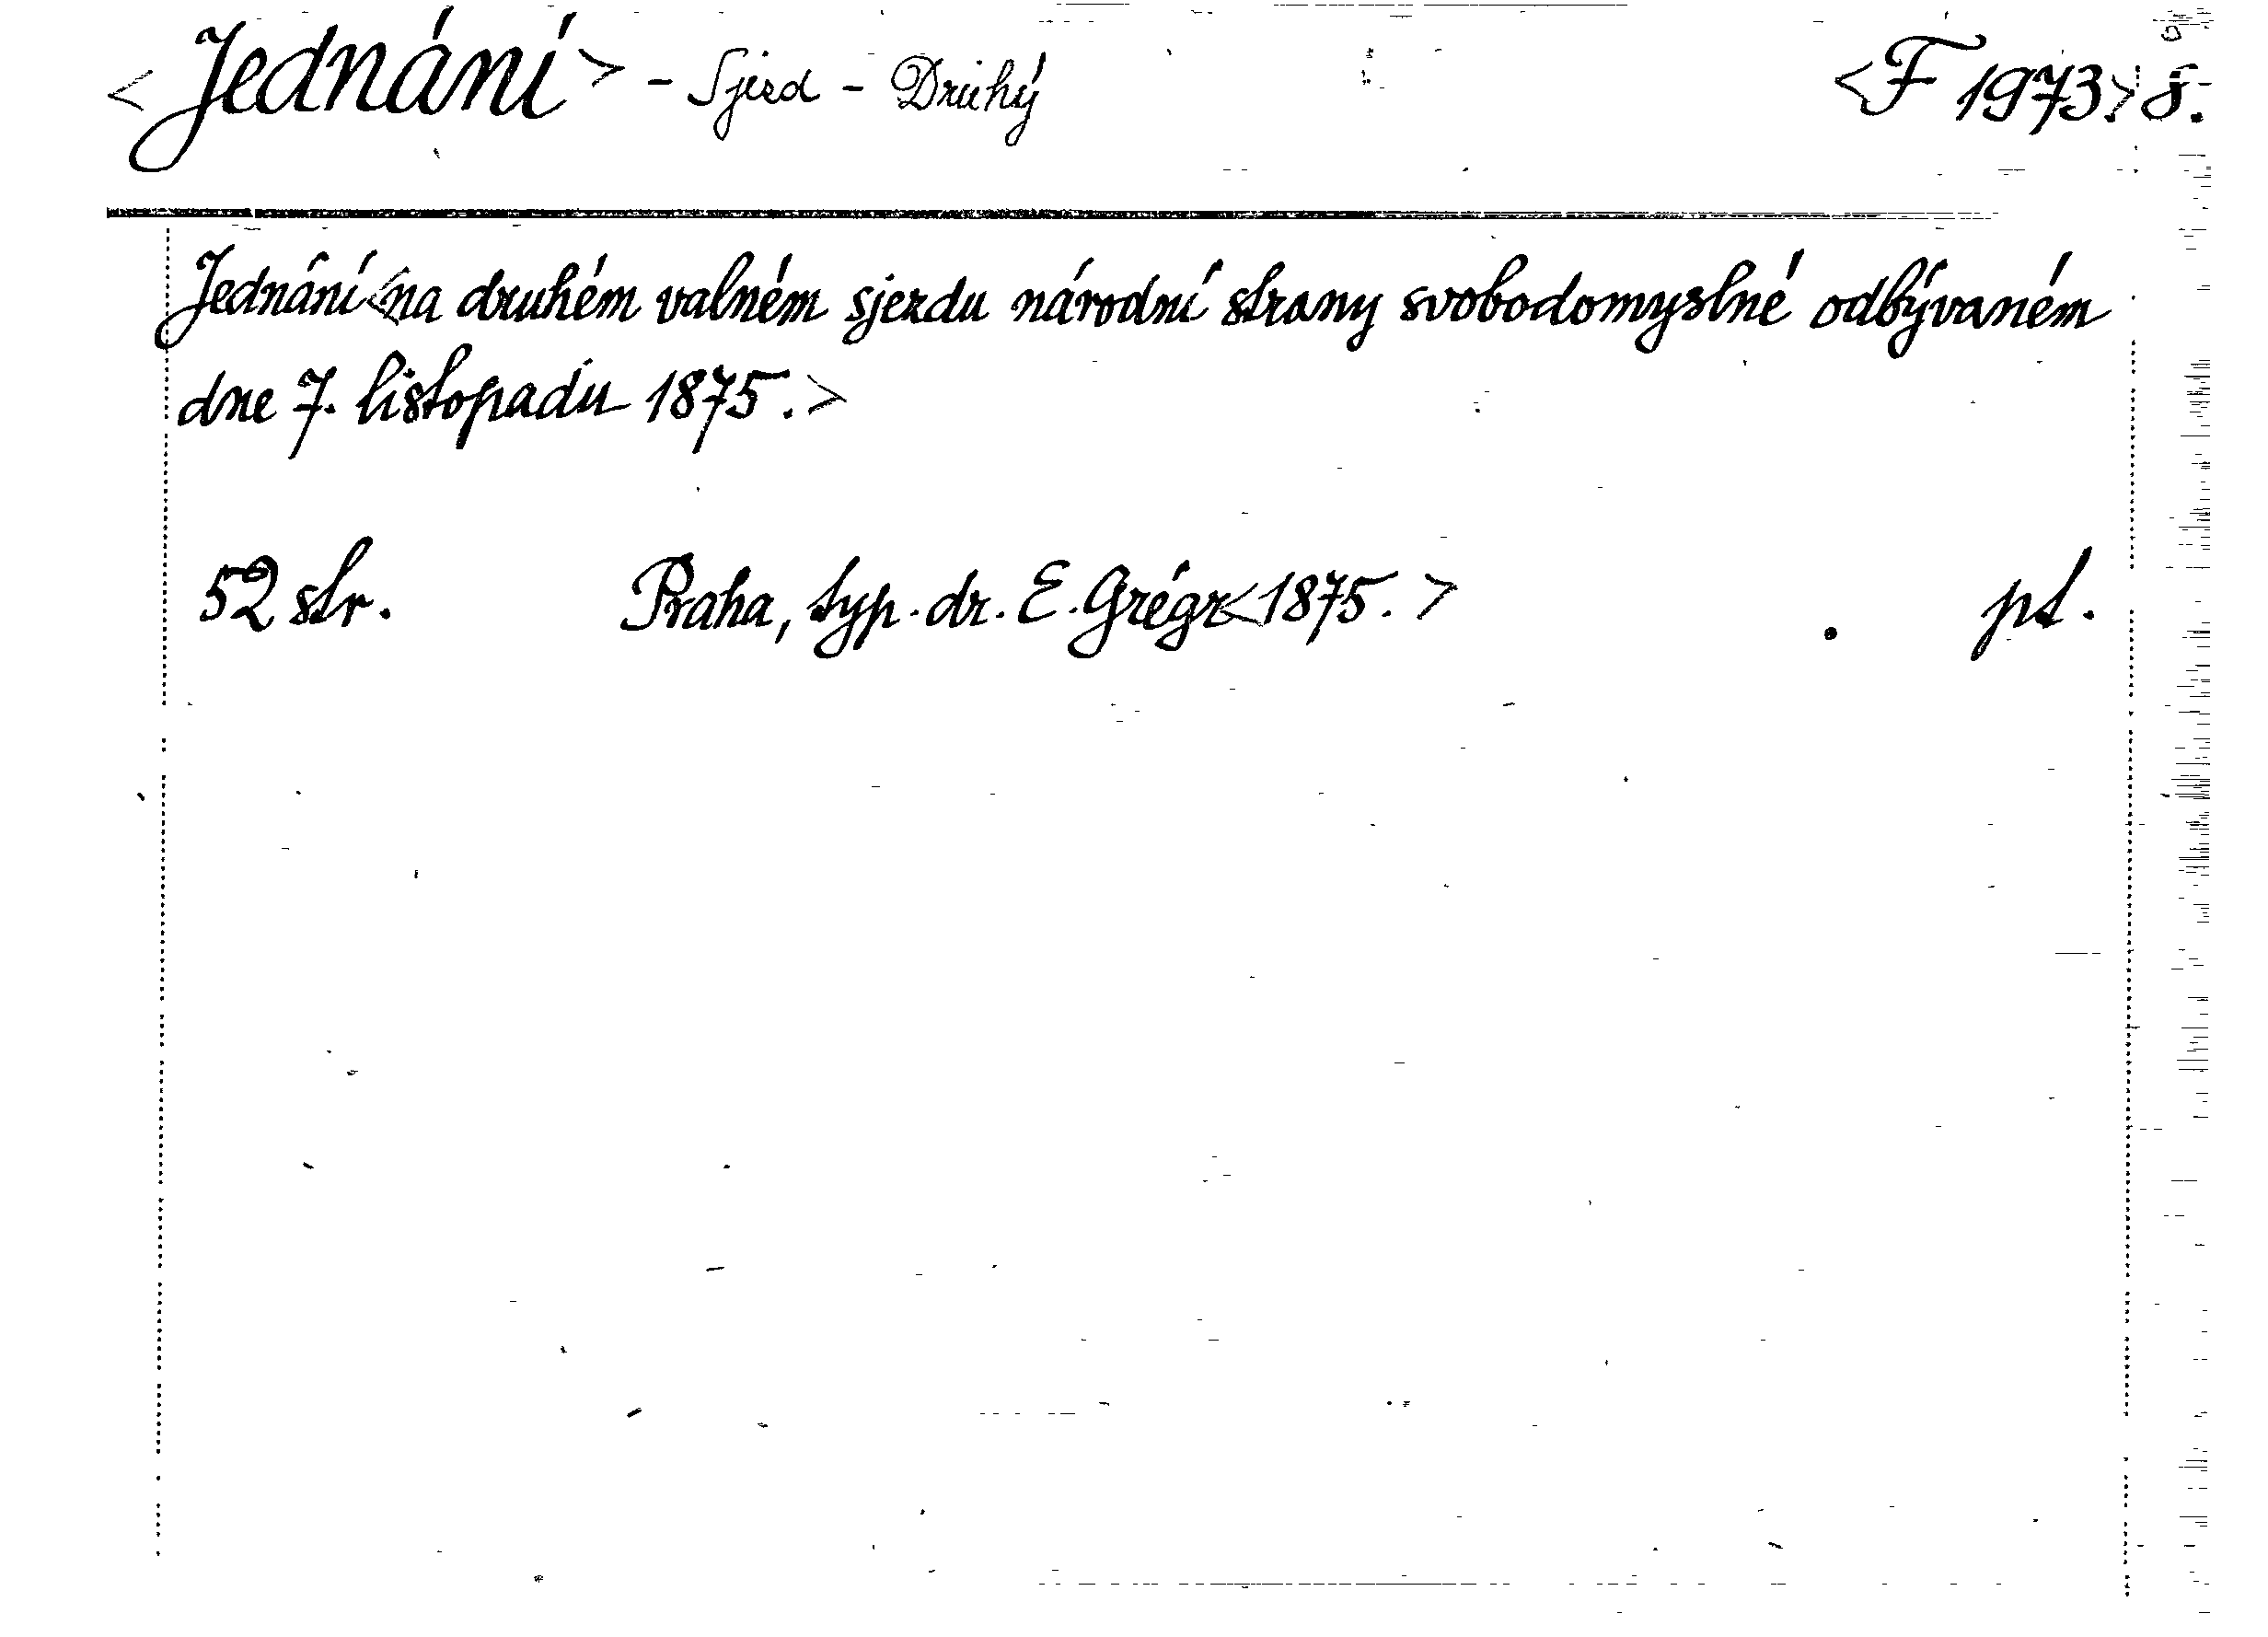 <Jednání> - Sjezd - Druhý <F 1973> 8.
Jednání <na druhém valném sjezdu národní strany svobodomyslné odbývaném
dne 7. listopadu 1875.>
52 str. Praha, typ. dr. E. Grégr <1875.> pt.